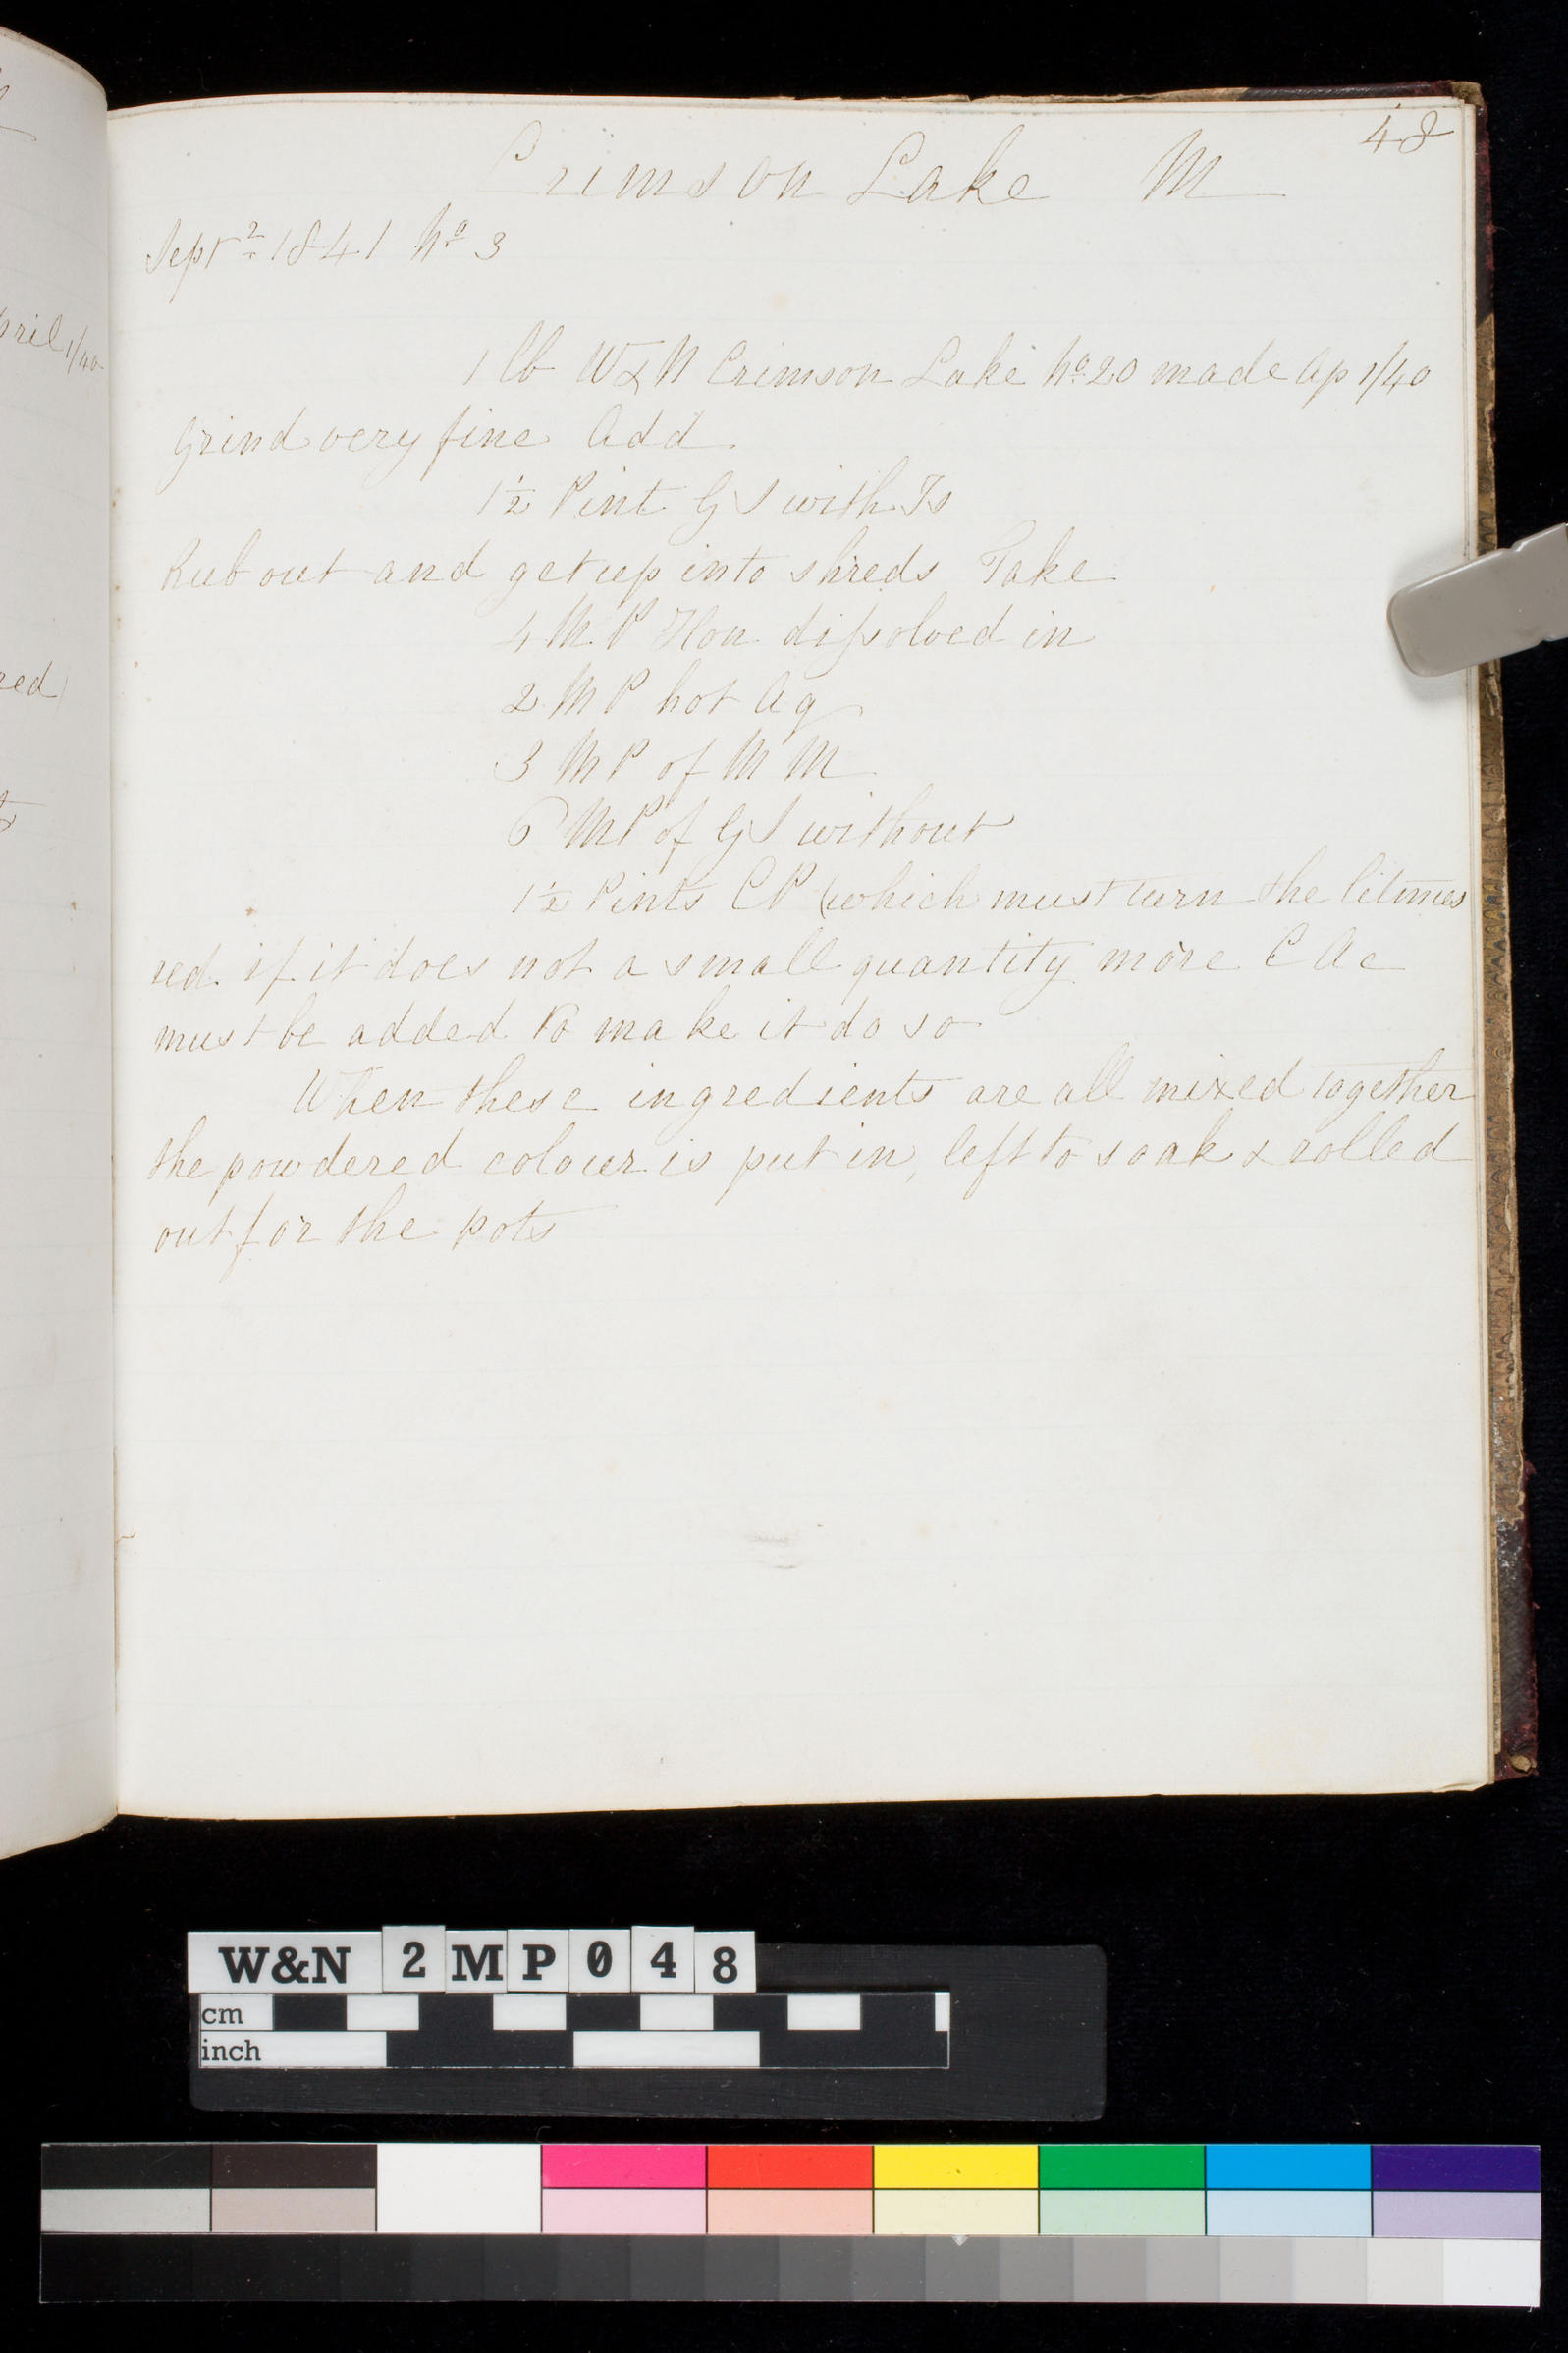 48
Crimson Lake M
Sept 2 1841 No 3
1 lb W & N Crimson Lake No 20 made Ap 1/40
Grind very fine Add
1½ Pint G S with Ts
Rub out and get up into shreds Take
4 M P Hon dissolved in
2 M P hot Aq
3 M P of M M
6 M P of G S without
1½ Pints C P (which must turn the litmus
red if it does not a small quantity more C Ac
must be added to make it do so
When these ingredients are all mixed together
the powdered colour is put in, left to soak & rolled
out for the pots
pril 1/40
red
W&N 2MP048
cm
inch